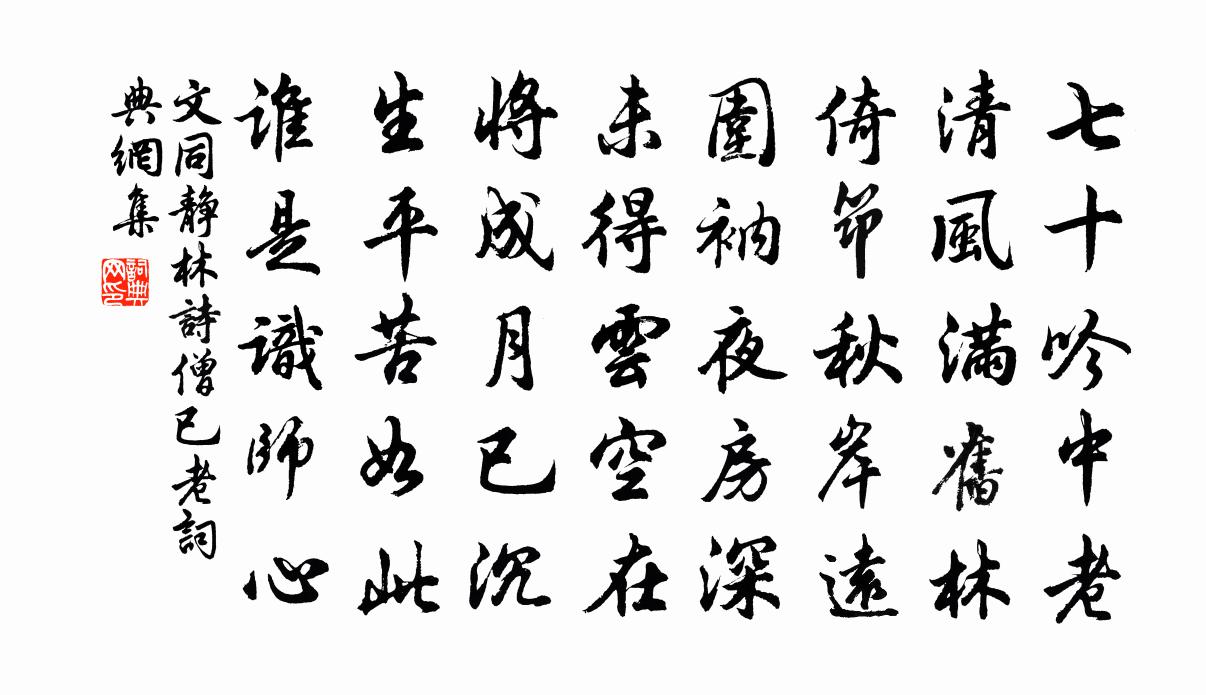 七十吟中老
清風滿舊林
倚筇秋岸遠
圍衲夜房深
未得雲空在
將成月已沉
生平苦如此
誰是識師心
文同靜林詩僧已老詞
典網集
詞典
网印